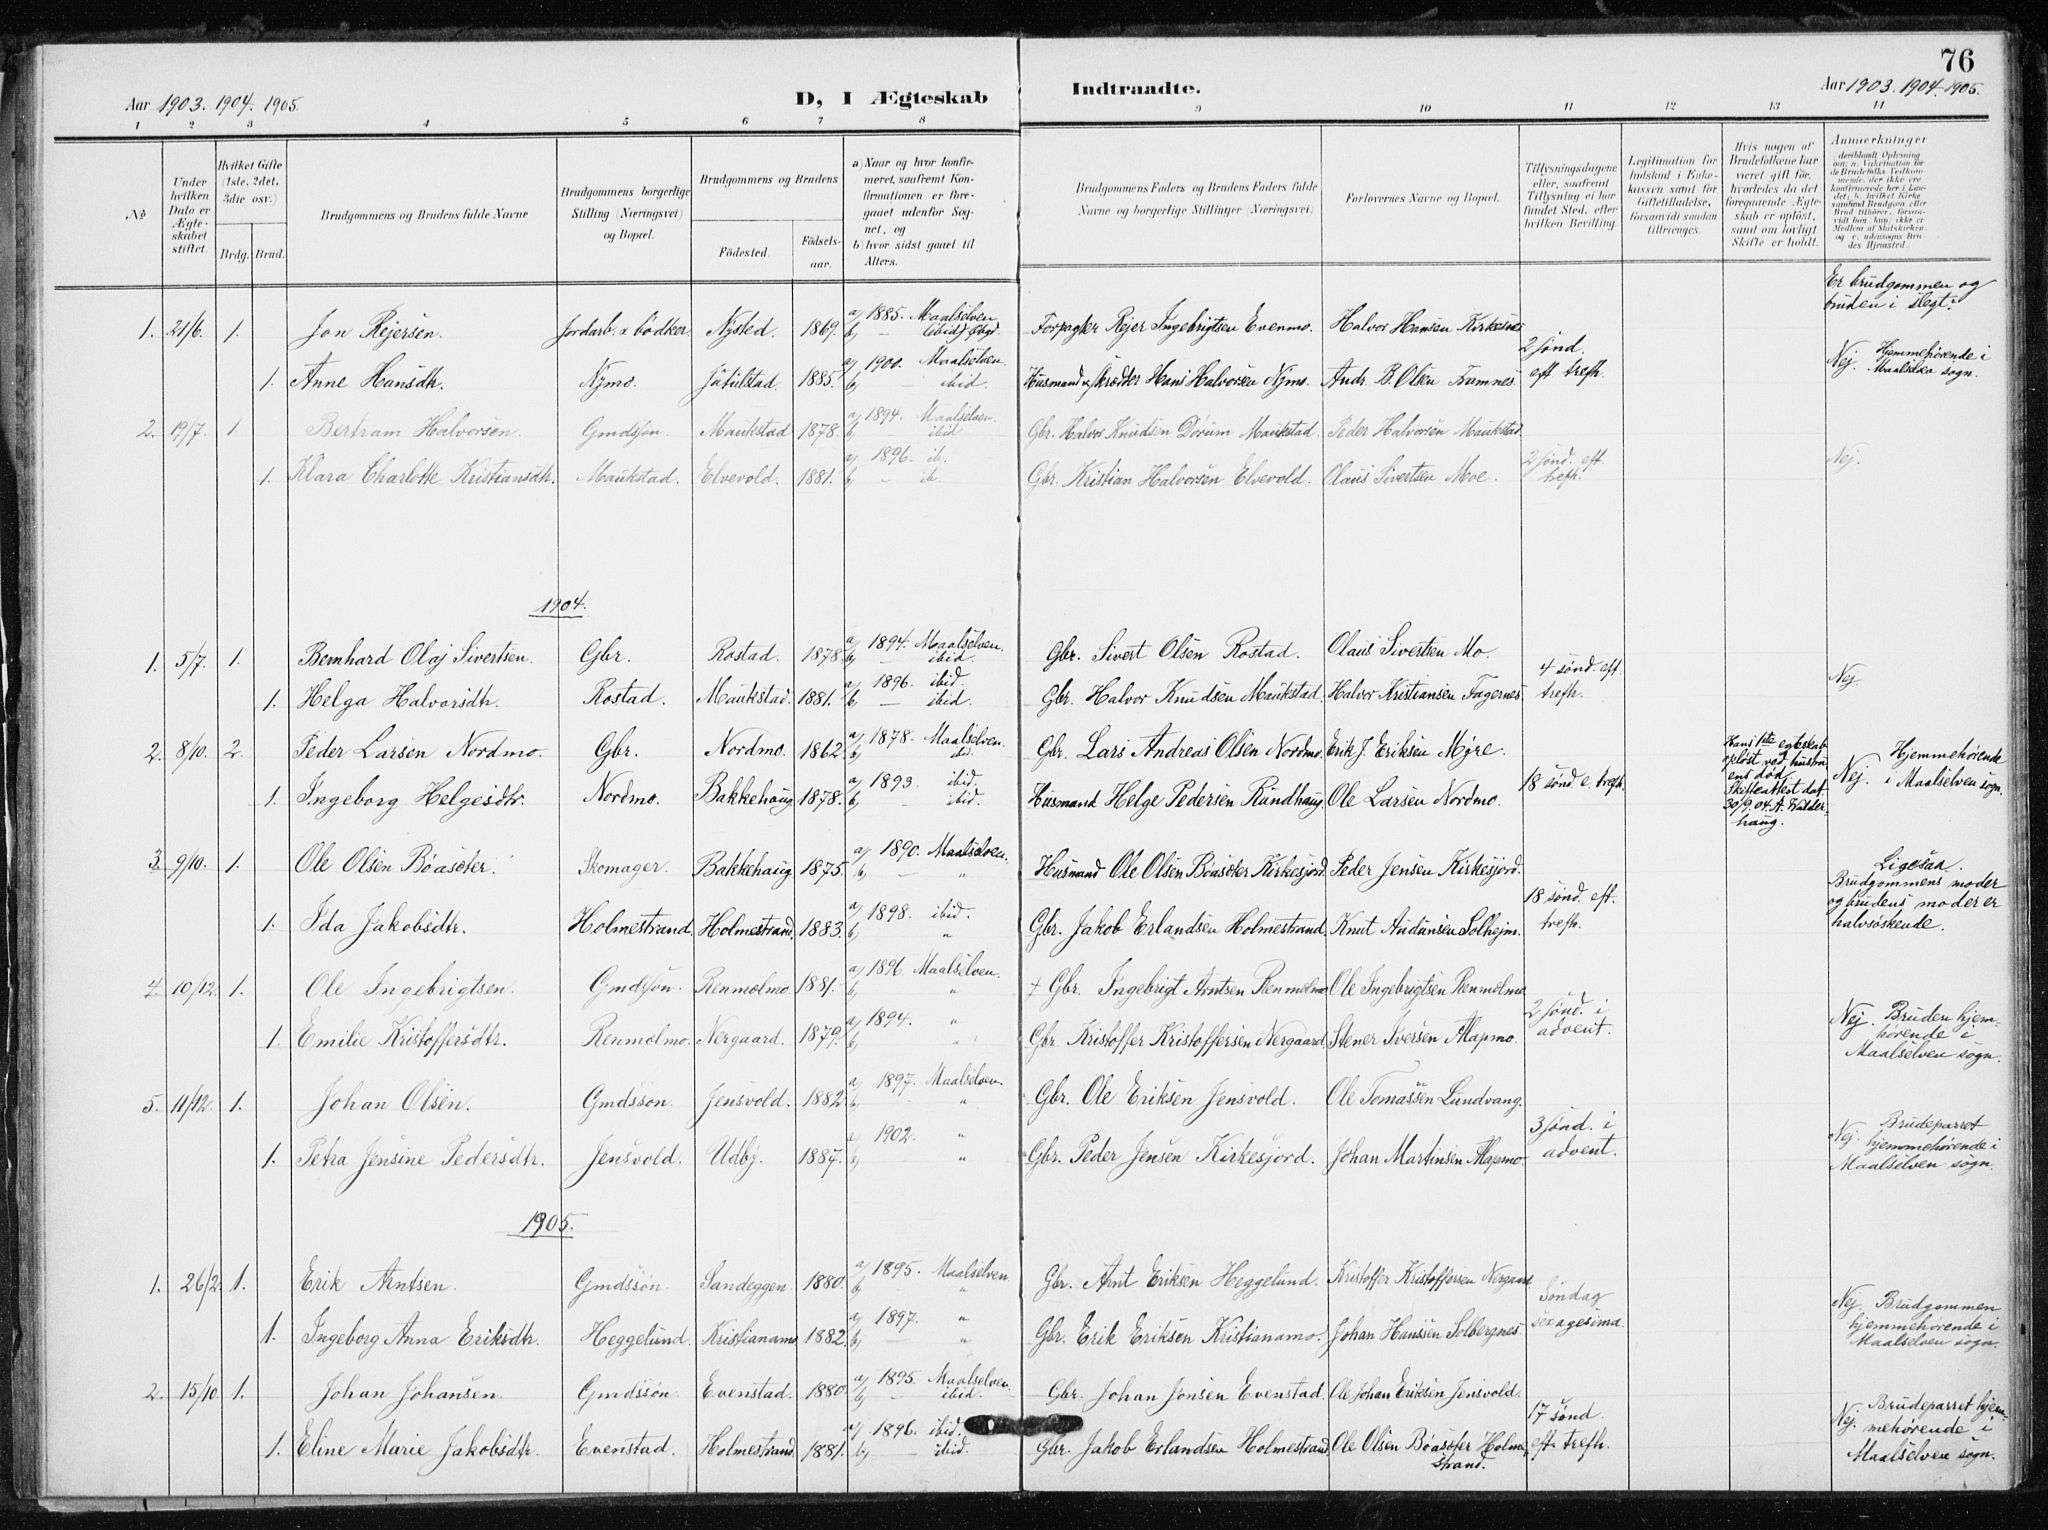 76
Aar 1903. 1904. 1905.
D, I Ægteskab Indtraadte.
Aar 1903. 1904. 1905.
1 2 3 4 5 6 7 8 9 10 11 12 13 14
№
Under hvilken Dato er Ægteskabet stiftet.
Hvilket Gifte (1ste, 2det, 3die osv.)
Brdg. Brud.
Brudgommens og Brudens fulde Navne
Brudgommens borgerlige Stilling (Næringsvei) og Bopæl.
Brudgommens og Brudens
Födested. Födsels-aar.
a) Naar og hvor konfirmeret, saafremt Konfirmationen er foregaaet udenfor Sognet, og
b) hvor sidst gaaet til Alters.
Brudgommens Faders og Brudens Faders fulde Navne og borgerlige Stillinger (Næringsvei)
Forlovernes Navne og Bopæl.
Tillysningsdagene eller, saafremt Tillysning ei har fundet Sted, efter hvilken Bevilling.
Legitimation for Indskud i Enkekassen samt for Giftetilladelse, forsaavidt saadan tiltrænges.
Hvis nogen af Brudefolkene har været gift för, hvorledes da det foregaaende Ægteskab er oplöst, samt om lovligt Skifte er holdt.
Anmerkninger
Er brudgommen og bruden i slegt?
1. 21/6. 1. Jon Rejersen. Jordarb. & bödker. Nysted. 1869. a) 1885. Maalselven b) — (ibid) Forpagter Rejer Ingebrigtsen Evenmo. Halvor Hansen Kirkesnes
1. Anne Hansdtr. Nymo. Jutulstad. 1885. a) 1900. Maalselven b) — ibid. Husmand & skrædder Hans Halvorsen Nymo. Andr. B. Olsen Framnes. 2 sönd. eft trefh. Nej. Hjemmehørende i Maalselven sogn.
2. 19/7. 1. Bertram Halvorsen. Gmdssön. Maukstad 1878. a) 1894. Maalselven b) — ibid Gbr. Halvor Knudsen Dørum Maukstad. Peder Halvorsen Maukstad
1. Klara Charlotte Kristiansdtr. Maukstad. Elvevold. 1881. a) 1896. ib. b) — ib. Gbr. Kristian Halvorsen Elvevold. Olaus Sivertsen Moe. 2 sönd. eft trefh. Nej.
1904.
1. 5/7. 1. Bernhard Olaj Sivertsen. Gbr. Rostad. 1878. a) 1894. Maalselven. b) — ibid. Gbr. Sivert Olsen Rostad. Olaus Sivertsen Mo.
1. Helga Halvorsdtr. Rostad. Maukstad. 1881. a) 1896. ibid. b) — ibid. Gbr. Halvor Knudsen Maukstad. Halvor Kristiansen Fagernes 4 sönd. eft trefh. Nej.
2. 8/10. 2. Peder Larsen Nordmo. Gbr. Nordmo. 1862. a) 1878. Maalselven. b) — ibid. Gbr. Lars Andreas Olsen Nordmo. Erik J. Eriksen Myre.
1. Ingeborg Helgesdtr. Nordmo. Bakkehaug 1878. a) 1893. ibid. b) — ibid. Husmand Helge Pedersen Rundhaug Ole Larsen Nordmo. 18 sönd e. trefh. Hans 1ste egteskab opløst ved hustruens død. Skifteattest dat 30/9. 04. Nej. Hjemmehørende i Maalselven sogn.
3. 9/10. 1. Ole Olsen Böasæter. Skomager. Bakkehaug 1875. a) 1890. Maalselven. b) — " Husmand Ole Olsen Böasæter Kirkesjord. Peder Jensen Kirkesjord.
1. Ida Jakobsdtr. Holmestrand. Holmestrand. 1883. a) 1898. ibid. b) " Gbr. Jakob Erlandsen Holmestrand. Knut Audunsen Solhejm. 18 sönd. eft. trefh. Ligesaa. Brudgommens moder og brudens moder er halvsøskende.
4. 10/12. 1. Ole Ingebrigtsen. Gmdssön. Renmolmo. 1881. a) 1896. Maalselven. b) " † Gbr. Ingebrigt Arntsen Renmolmo Ole Ingebrigtsen Renmolmo.
1. Emilie Kristoffersdtr. Renmolmo. Nergaard. 1879. a) 1894. " b) " Gbr. Kristoffer Kristoffersen Nergaard. Stener Iversen Alapmo. 2 sönd. i advent. Nej. Bruden hjemhørende i Maalselven sogn.
5. 11/12. 1. Johan Olsen. Gmdssön. Jensvold. 1882. a) 1897. Maalselven. b) " Gbr. Ole Eriksen Jensvold. Ole Tomassen Lundvang.
1. Petra Jensine Pedersdtr. Jensvold. Udby. 1887. a) 1902. " b) " Gbr. Peder Jensen Kirkesjord. Johan Martinsen Alapmo 3 sönd. i advent. Nej. Brudeparret hjemmehørende i Maalselven sogn.
1905.
1. 26/2. 1. Erik Arntsen. Gmdssön. Sandeggen. 1880. a) 1895. Maalselven b) " Gbr. Arnt Eriksen Heggelund. Kristoffer Kristoffersen Nergaard
1. Ingeborg Anna Eriksdtr. Heggelund. Kristianamo. 1882. a) 1897. " b) — " Gbr. Erik Eriksen Kristianamo. Johan Hanssen Solbergnes. Söndag sexagesima. Nej. Brudgommen hjemmehørende i Maalselven sogn.
2. 15/10. 1. Johan Johansen. Gmdssön. Evenstad. 1880. a) 1895. Maalselven. b) — ibid. Gbr. Johan Jonsen Evenstad. Ole Johan Eriksen Jensvold.
1. Eline Marie Jakobsdtr. Evenstad. Holmestrand. 1881. a) 1896. ibid. b) — ibid. Gbr. Jakob Erlandsen Holmestrand. Ole Olsen Böasæter Holmestrand. 17 sönd. eft. trefh. Nej. Brudeparret hjemmehørende i Maalselven sogn.